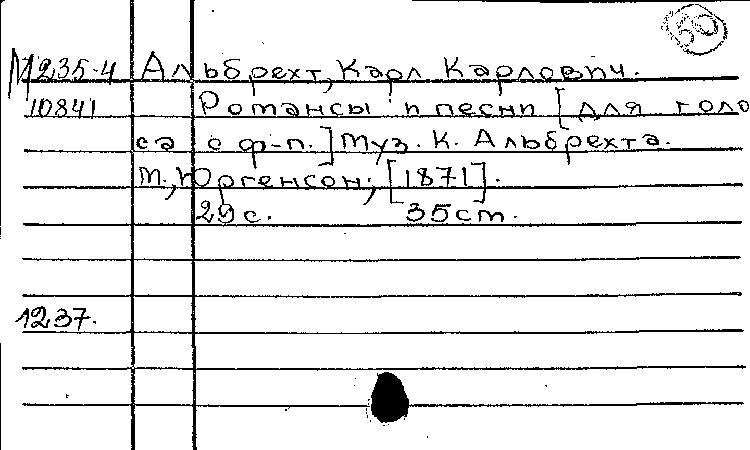 50
М235-4 Альбрехт, Карл Карлович.
10841 Романсы и песни [для голо
са с ф-п.] Муз. К. Альбрехта.
М., Юргенсон, [1871].
29 с. 35 см.
1237.